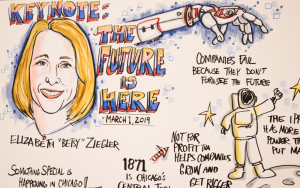 KEYNOTE:
THE
FUTURE
IS
HERE
MARCH 1, 2019
ELIZABETH "BETSY" ZIEGLER
COMPANIES FAIL
BECAUSE THEY DON'T
FORESEE THE FUTURE
SOMETHING SPECIAL IS
HAPPENING IN CHICAGO!
1871
IS CHICAGO'S
CENTRAL
NOT FOR
PROFIT THAT
HELPS COMPANIES
GROW AND
GET BIGGER
THIS
HAS MORE
POWER
PUT